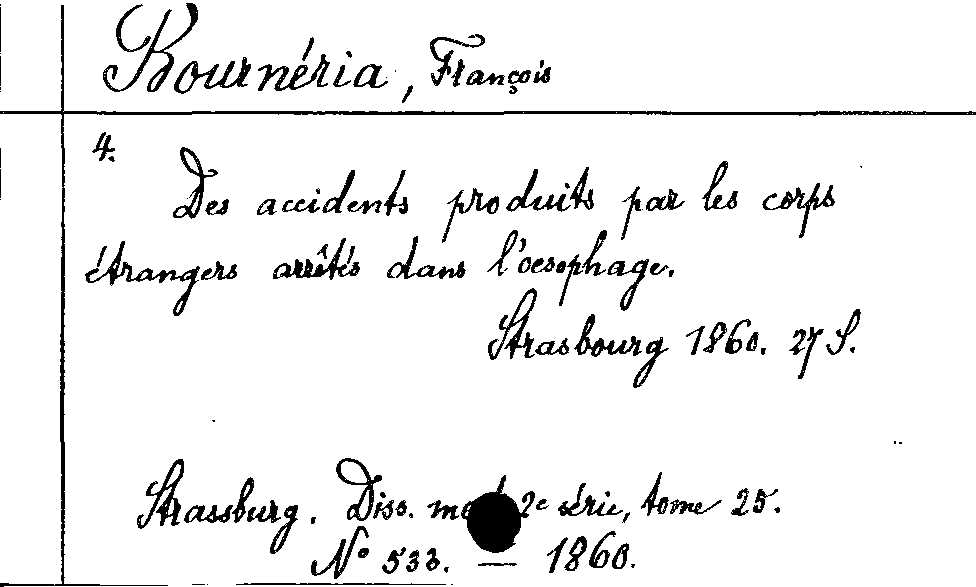 Bournéria, François
4.
Des accidents produits par les corps
étrangers arrêtés dans l'oesophage.
Strasbourg 1860. 27 S.
Strassburg. Diss. med. 2e série, tome 25.
No 533. — 1860.